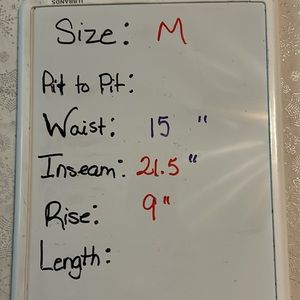 Size: M
Pit to Pit:
Waist: 15 "
Inseam: 21.5 "
Rise: 9"
Length: